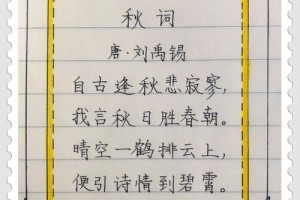 秋词
唐·刘禹锡
自古逢秋悲寂寥,
我言秋日胜春朝。
晴空一鹤排云上,
便引诗情到碧霄。